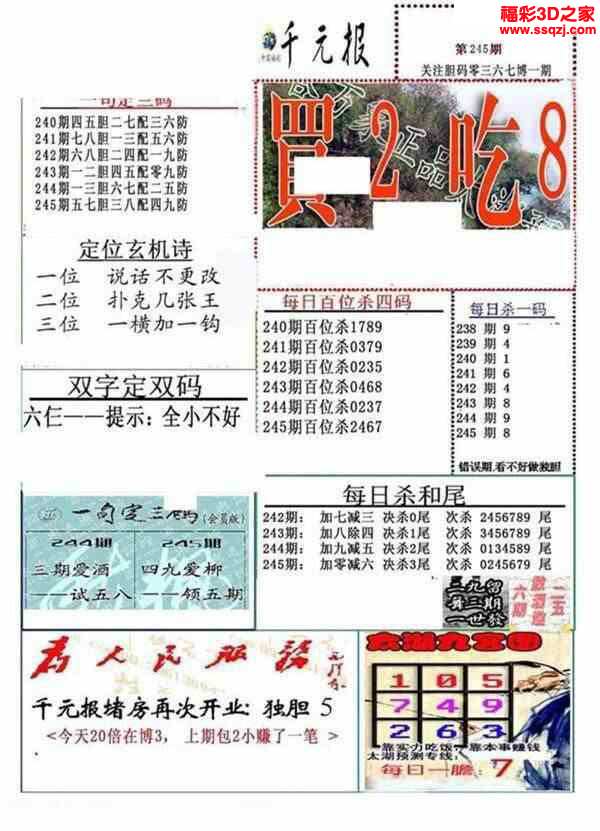 福彩3D之家
www.ssqzj.com
千元报
第245期
关注胆码零三六七博一期
一句定三码
240期四五胆二七配三六防
241期七八胆一三配五六防
242期六八胆二四配一九防
243期一二胆四五配零九防
244期一三胆六七配二五防
245期五七胆三八配四九防
買2吃8
定位玄机诗
一位 说话不更改
二位 扑克几张王
三位 一横加一钩
每日百位杀四码
240期百位杀1789
241期百位杀0379
242期百位杀0235
243期百位杀0468
244期百位杀0237
245期百位杀2467
每日杀一码
238 期 9
239 期 4
240 期 1
241 期 6
242 期 4
243 期 8
244 期 9
245 期 8
错误期,看不好做独胆
双字定双码
六仨——提示:全小不好
每日杀和尾
242期: 加七减三 决杀0尾 次杀 2456789 尾
243期: 加八除四 决杀1尾 次杀 3456789 尾
244期: 加九减五 决杀2尾 次杀 0134589 尾
245期: 加零减六 决杀3尾 次杀 0245679 尾
一句定三码(会员版)
244期 245期
三期爱酒 四九爱柳
——试五八 ——领五期
为人民服务
千元报堵房再次开业:独胆 5
<今天20倍在博3, 上期包2小赚了一笔>
太湖九宫图
1 0 5
7 4 9
2 6 3
靠实力吃饭,靠本事赚钱
太湖预测专线:
每日一胆: 7